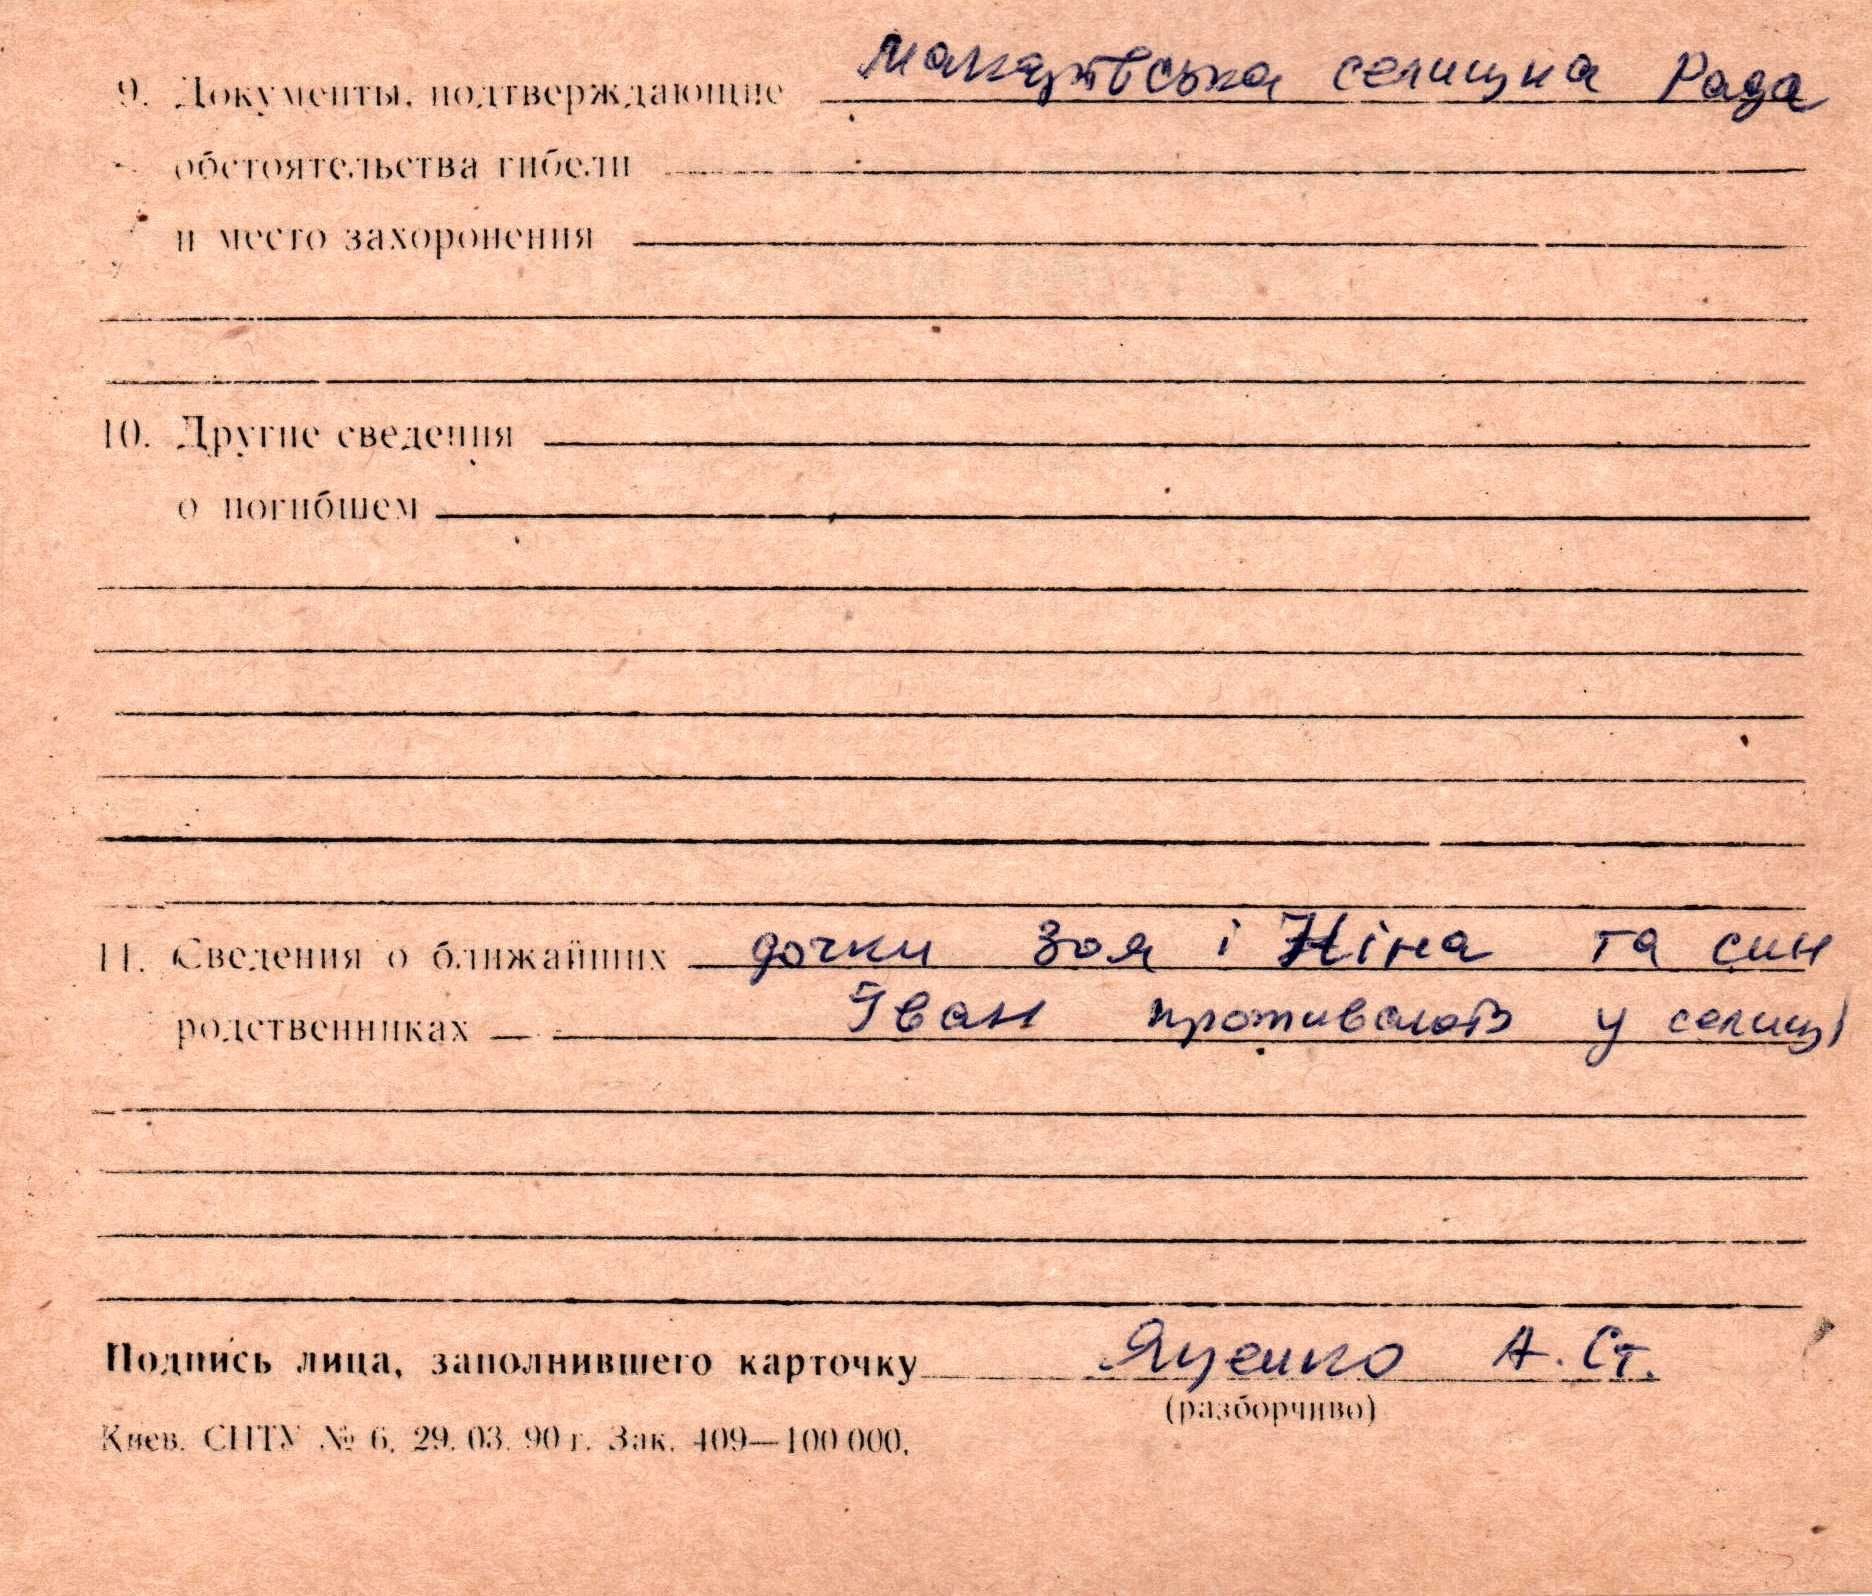 9. Документы, подтверждающие Макарівська селищна Рада
обстоятельства гибели
и место захоронения
10. Другие сведения
о погибшем
11. Сведения о ближайших дочки Зоя і Ніна та син
родственниках Іван проживають у селищі
Подпись лица, заполнившего карточку Яценко А. Ст.
(разборчиво)
Киев. СПТУ № 6. 29. 03. 90 г. Зак. 409—100 000.